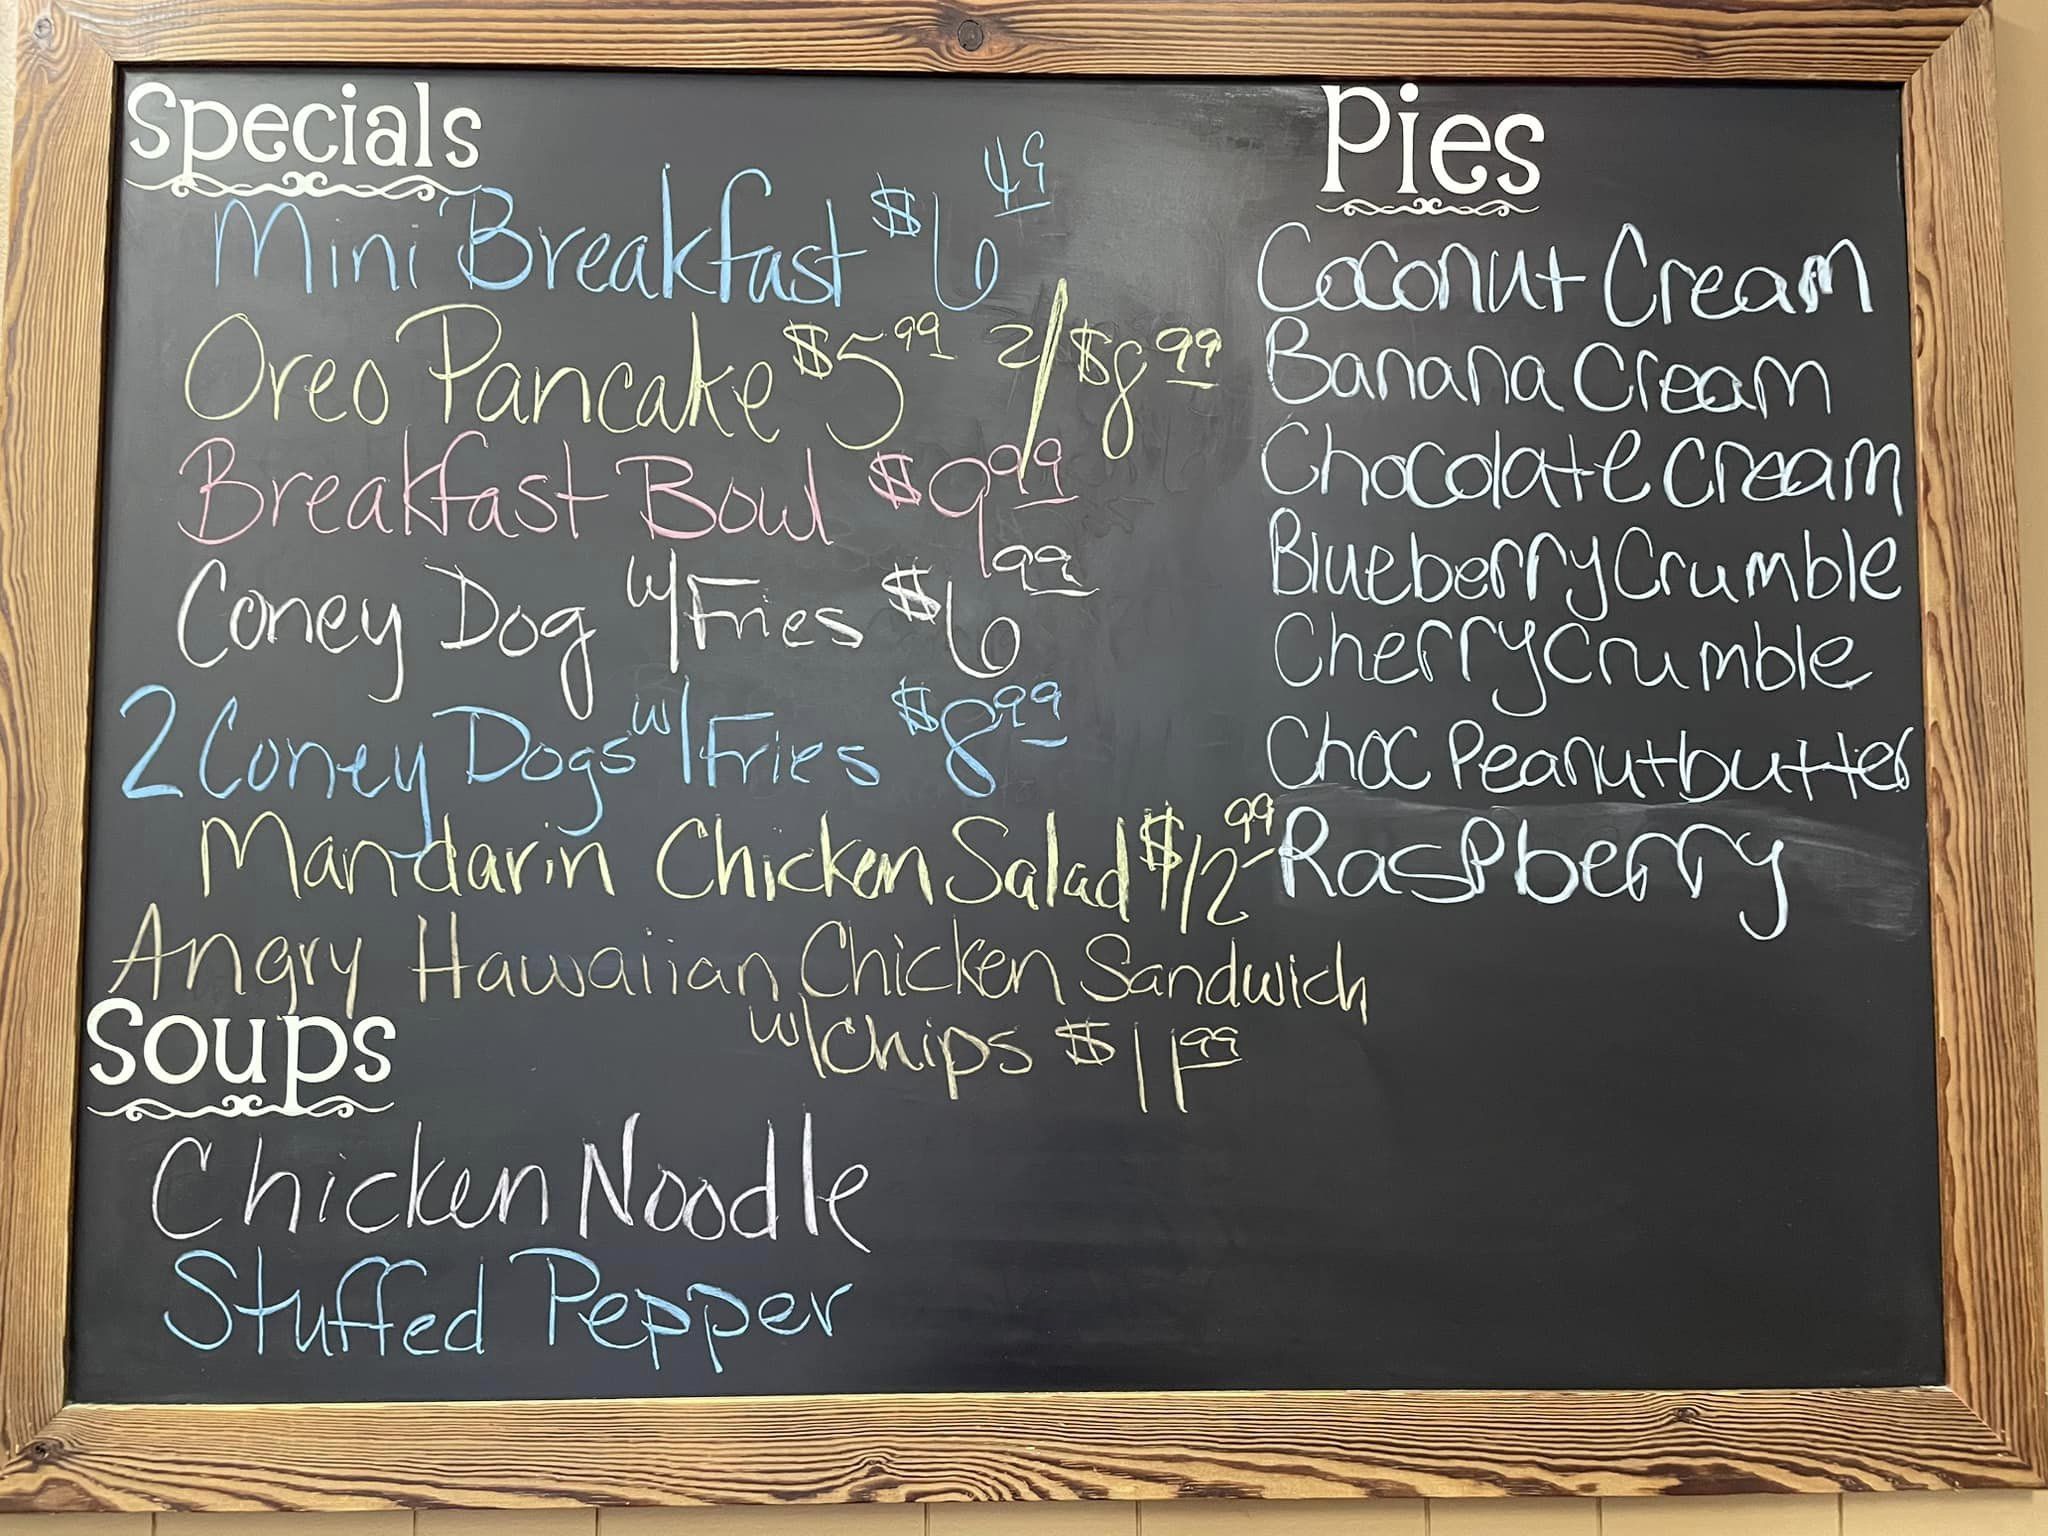 Specials
Mini Breakfast $6 49
Oreo Pancake $5 99 2/$8 99
Breakfast Bowl $9 99
Coney Dog w/Fries $6 99
2 Coney Dogs w/Fries $8 99
Mandarin Chicken Salad $12 99
Angry Hawaiian Chicken Sandwich
w/chips $11 99
Soups
Chicken Noodle
Stuffed Pepper
Pies
Coconut Cream
Banana Cream
Chocolate Cream
Blueberry Crumble
Cherry Crumble
Choc Peanutbutter
Raspberry